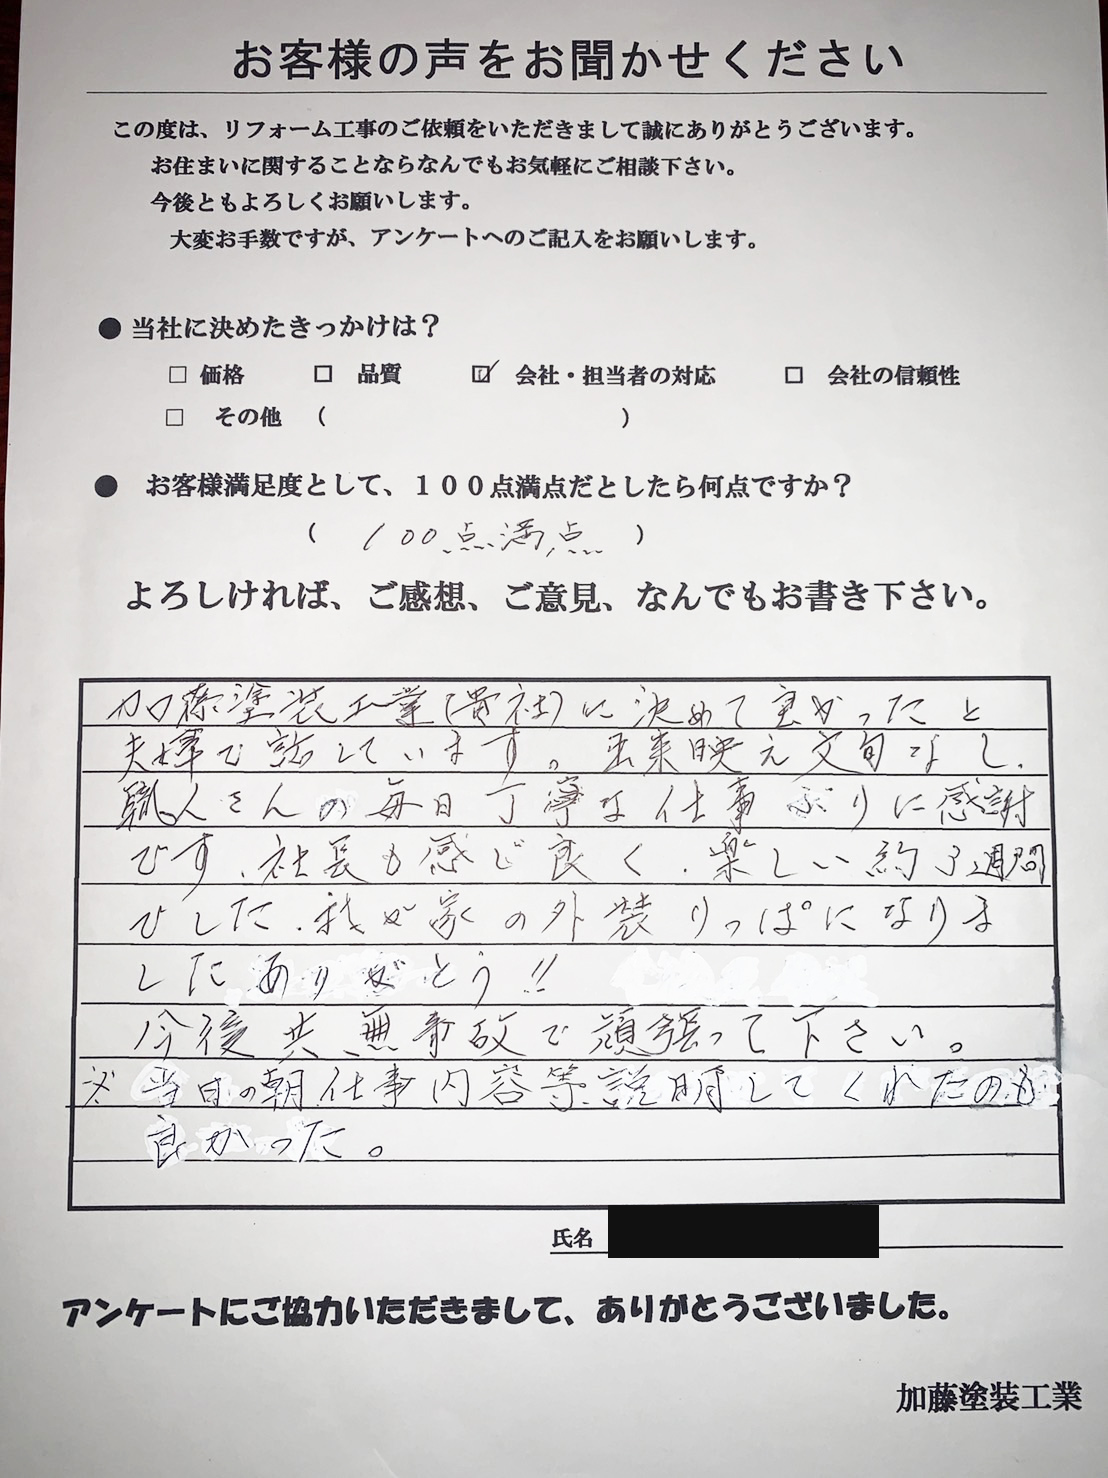 お客様の声をお聞かせください
この度は、リフォーム工事のご依頼をいただきまして誠にありがとうございます。
お住まいに関することならなんでもお気軽にご相談下さい。
今後ともよろしくお願いします。
大変お手数ですが、アンケートへのご記入をお願いします。
● 当社に決めたきっかけは？
□ 価格 □ 品質 ☑ 会社・担当者の対応 □ 会社の信頼性
□ その他 （ ）
● お客様満足度として、１００点満点だとしたら何点ですか？
（ 100点満点 ）
よろしければ、ご感想、ご意見、なんでもお書き下さい。
加藤塗装工業(貴社)に決めて良かったと
夫婦で話しています。出来映え文句なし、
職人さんの毎日丁寧な仕事ぶりに感謝
です、社長も感じ良く、楽しい約3週間
でした、我が家の外装りっぱになりま
したありがとう!!
今後共、無事故で頑張って下さい。
※当日の朝、仕事内容等説明してくれたのも
良かった。
氏名
アンケートにご協力いただきまして、ありがとうございました。
加藤塗装工業